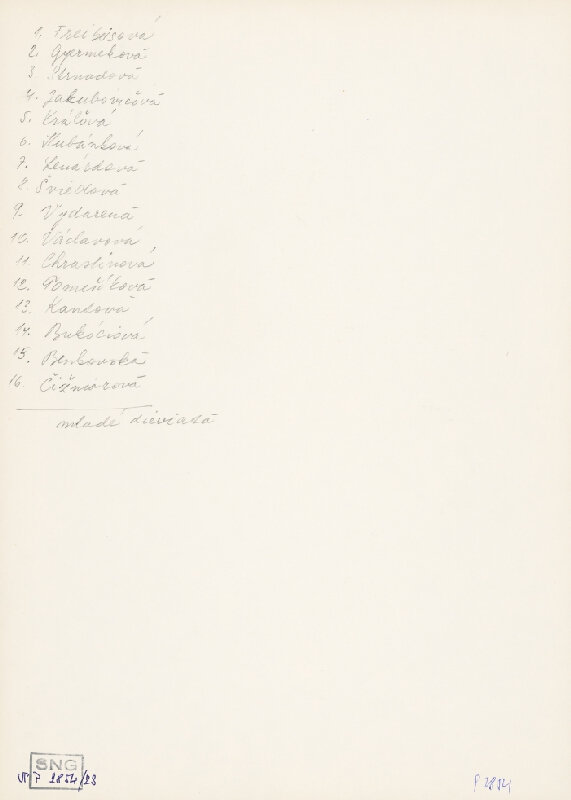 1. Freibišová
2. Gyermeková
3 Strnadová
4. Jakubovičová
5. Kráľová
6. Hubánková
7. Lenárdová
8 Šviežová
9. Vydarená
10. Václavová
11. Chrastinová
12. Pomeňková
13. Kantová
14. Bukóciová
15. Benkovská
16. Čižmárová
mladé dievčatá
SNG
P 1854/23
P 1854